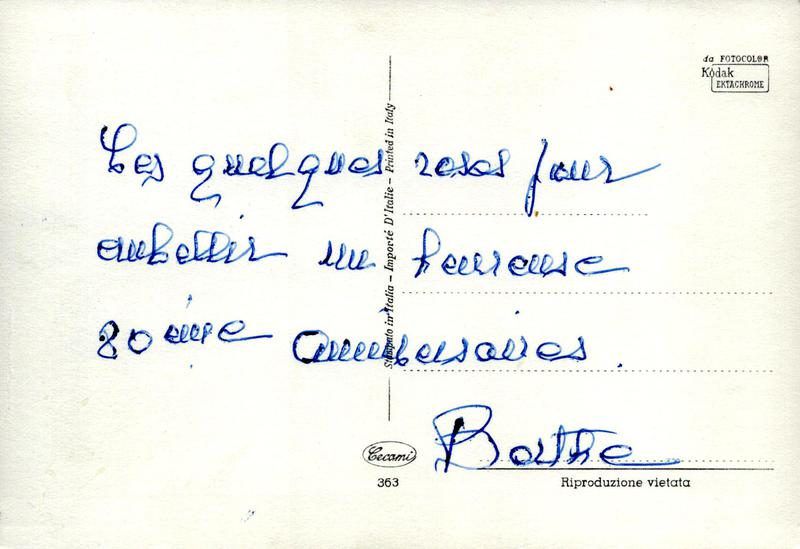 da FOTOCOLOR
Kodak
EKTACHROME
Ces quelques roses pour
embellir un heureuse
80ème anniversaires.
Berthe
Stampato in Italia - Importé D'Italie - Printed in Italy
Cecami
363
Riproduzione vietata